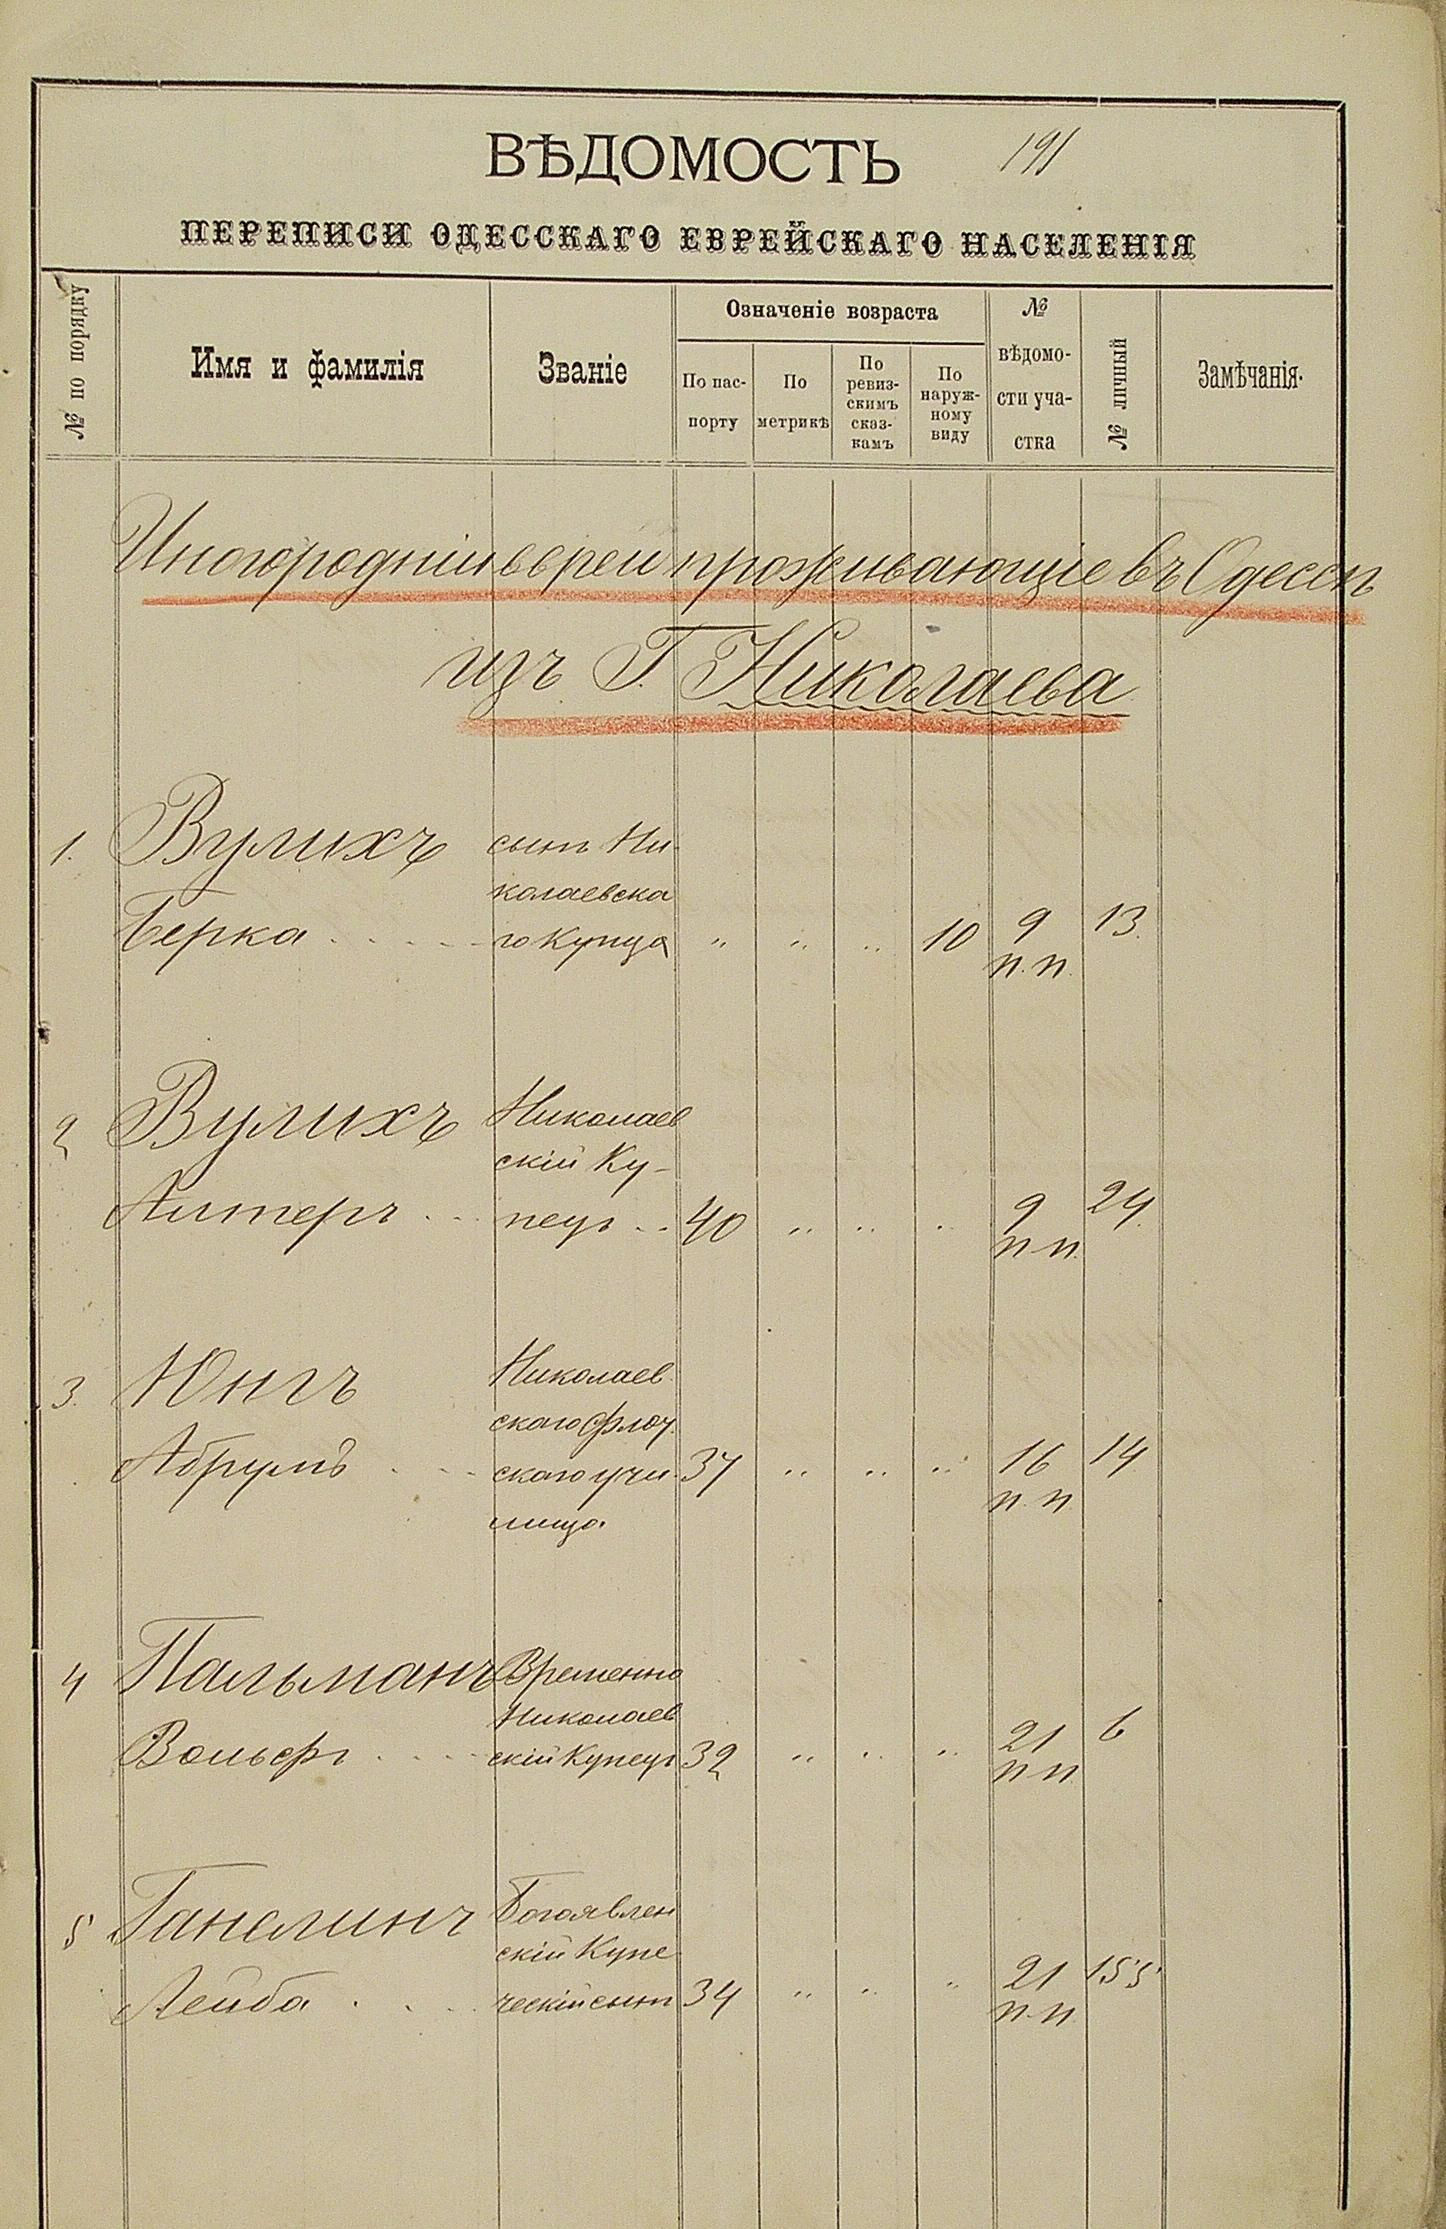 ВѢДОМОСТЬ 191
ПЕРЕПИСИ ОДЕССКАГО ЕВРЕЙСКАГО НАСЕЛЕНІЯ
№ по порядку
Имя и фамилія
Званіе
Означеніе возраста
По пас-
порту
По
метрикѣ
По
ревиз-
скимъ
сказ-
камъ
По
наруж-
ному
виду
№
вѣдомо-
сти уча-
стка
№ личный
Замѣчанія.
Иногородніи евреи проживающіе въ Одессѣ
изъ Г. Николаева
1. Вулихъ сынъ Ни-
колаевска
Берка го Купца " " " 10 9 13.
п.п.
2 Вулихъ Николаев
скій Ку-
Алтеръ пецъ 40 " " " 9 24.
п.п.
3. Юнгъ Николаев
скаго флот.
Абрумъ скаго учи- 37 " " " 16 14
лища. п.п.
4 Пальманъ Временно
Николаев
Вольфъ скій Купецъ 32 " " " 21 6
п.п.
5 Ганелинъ Богоявлен
скій Купе
Лейба ческій сынъ 34 " " " 21 155
п.п.